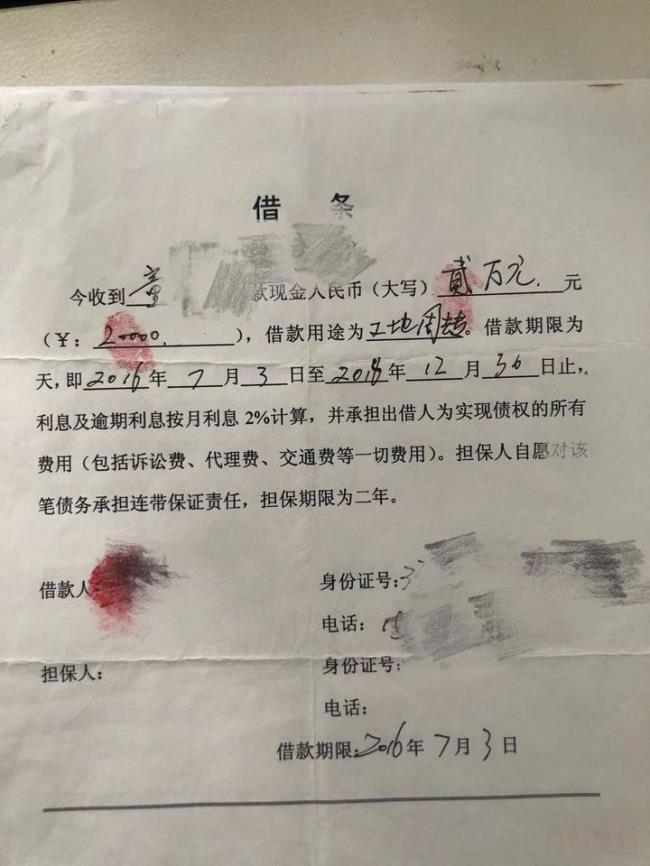 借 条
今收到 款现金人民币（大写）貳万元. 元
（¥：20000. ），借款用途为工地周转。借款期限为
天，即2016年 7 月 3 日至2018年 12 月 30 日止，
利息及逾期利息按月利息 2%计算，并承担出借人为实现债权的所有
费用（包括诉讼费、代理费、交通费等一切费用）。担保人自愿对该
笔债务承担连带保证责任，担保期限为二年。
借款人： 身份证号：3
电话：
担保人： 身份证号：
电话：
借款期限：2016年 7 月 3 日